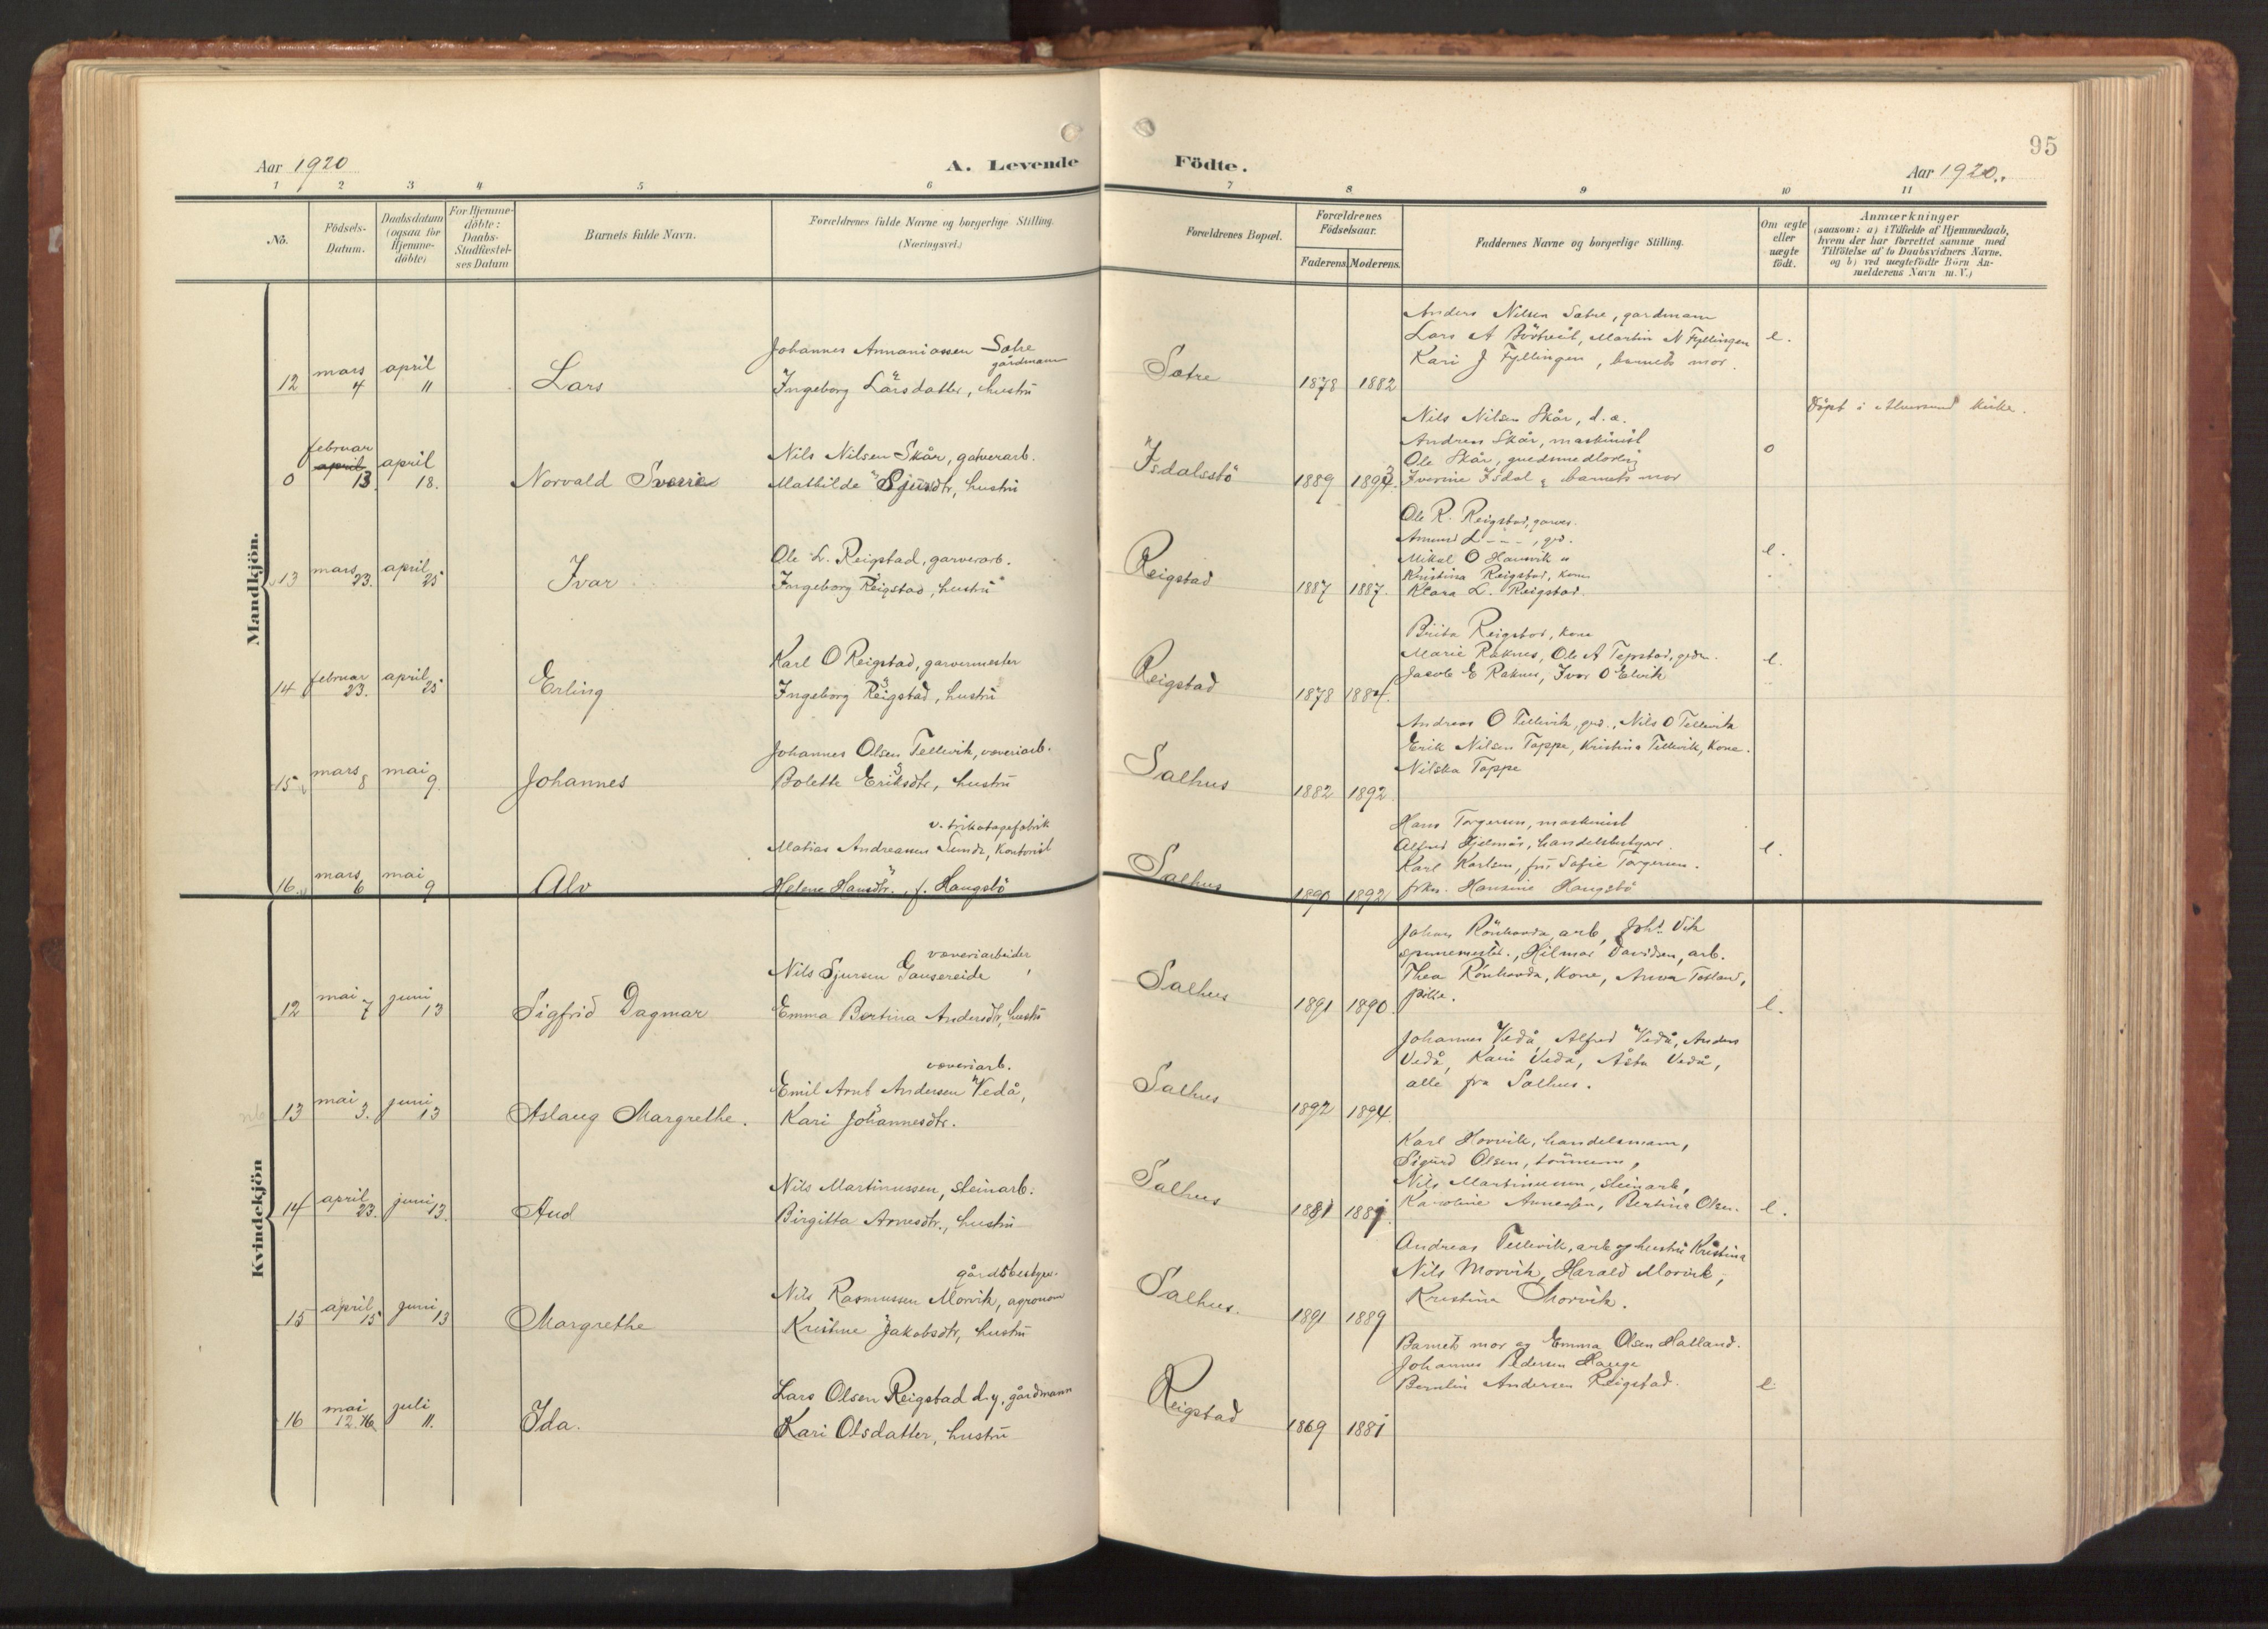 95
Aar 1920
A. Levende
Födte.
Aar 1920.
1 2 3 4 5 6 7 8 9 10 11
No.
Födsels-
Datum.
Daabsdatum
(ogsaa for
Hjemme-
döbte)
For Hjemme-
döbte:
Daabs-
Stadfæstel-
ses Datum
Barnets fulde Navn.
Forældrenes fulde Navne og borgerlige Stilling.
(Næringsvei.)
Forældrenes Bopæl.
Forældrenes
Födselsaar.
Faderens Moderens.
Faddernes Navne og borgerlige Stilling.
Om ægte
eller
uægte
födt.
Anmærkninger
(saasom: a) i Tilfælde af Hjemmedaab,
hvem der har forrettet samme med
Tilföielse af to Daabsvidners Navne,
og b) ved uægtefödte Börn An-
melderens Navn m. V.)
Mandkjön.
12
mars
4
april
11
Lars
Johannes Annaniassen Sætre
gårdmann
Ingeborg Larsdatter, hustru
Sætre
1878 1882
Anders Nilsen Sætre, gardmann
Lars A Martin N Fyllingen
Kari J Fyllingen, barnets mor.
e.
0
februar
april
13.
april
18.
Norvald Sverre
Nils Nilsen Skår, garverarb.
Mathilde Sjursdtr, hustru
Isdalsstö
1889 1893
Nils Nilsen Skår, d. æ.
Andreas Skår, maskinist
Ole Skår,
Iverine Isdal, barnets mor
Döpt i Alversund kirke.
13
mars
23.
april
25
Ivar
Ole L. Reigstad, garverarb.
Ingeborg Reigstad, hustru
Reigstad
1887 1887.
Ole R. Reigstad, garver.
Amund L - " - , grd.
Mikal O Hanevik "
Kristina Reigstad, kone
Klara L. Reigstad.
e.
14
februar
23.
april
25
Erling
Karl O Reigstad, garvermester
Ingeborg Reigstad, hustru
Reigstad
1878 1884.
Brita Reigstad, kone
Marie Raknes, Ole A Tepstad, grdm.
Jacob E Raknes, Ivar O Elvik
e.
15
mars
8
mai
9.
Johannes
Johannes Olsen Tellevik, væveriarb.
Bolette Eriksdtr, hustru
Salhus
1882 1892
Andreas O Tellevik, grd., Nils O Tellevik
Erik Nilsen Toppe, Kristina Tellevik, Kone.
Nilska Toppe
16.
mars
6
mai
9
Alv
v. trikotagefabrik
Matias Andreassen Sunde, Kontorist
Helene Hansdtr., f. Haugstö
Salhus
1890 1892
Hans Torgersen, maskinist
Alfred Hjelmås, handelsbestyrer
Karl Karlsen, fru Sofie Torgersen.
frkn. Hansine Haugstö
e.
Kvindekjön
12
mai
7
juni
13
Sigfrid Dagmar
væveriarbeider
Nils Sjursen Gausereide,
Emma Bertina Andersdtr, hustru
Salhus
1891 1890.
Johan Rönhovda, arb, Johs. Vik
spinnemester., Hilmar Davidsen, arb.
Thea Rönhovda, Kone, Anna Totland,
pike.
e.
13
mai
3.
juni
13
Aslaug Margrethe.
væveriarb.
Emil Arnt Andersen Vedå,
Kari Johannesdtr.
Salhus
1892 1894.
Johannes Vedå, Alfred Vedå, Anders
Vedå, Kari Vedå, Åsta Vedå,
alle fra Salhus.
14
april
23.
juni
13.
Aud
Nils Martinussen, steinarb.
Birgitta Arnesdtr., hustru
Salhus
1881
Karl Horvik, handelsmann,
Sigurd Olsen,
Nils Martinussen, steinarb,
Karoline Bertina Olsen.
e.
15
april
15
juni
13
Margrethe
gårdsbestyr.
Nils Rasmussen Morvik, agronom
Kristine Jakobsdtr, hustru
Salhus.
1891 1889
Andreas Tellevik, arb og hustru Kristina
Nils Morvik, Harald Morvik,
Kristina Morvik.
16
mai
12.
juli
11.
Ida.
Lars Olsen Reigstad d.y, gårdmann
Kari Olsdatter, hustru
Reigstad
1869 1881
Barnets mor og Emma Olsen Hatland.
Johannes Pedersen Hauge
Berntin Andersen Reigstad.
e